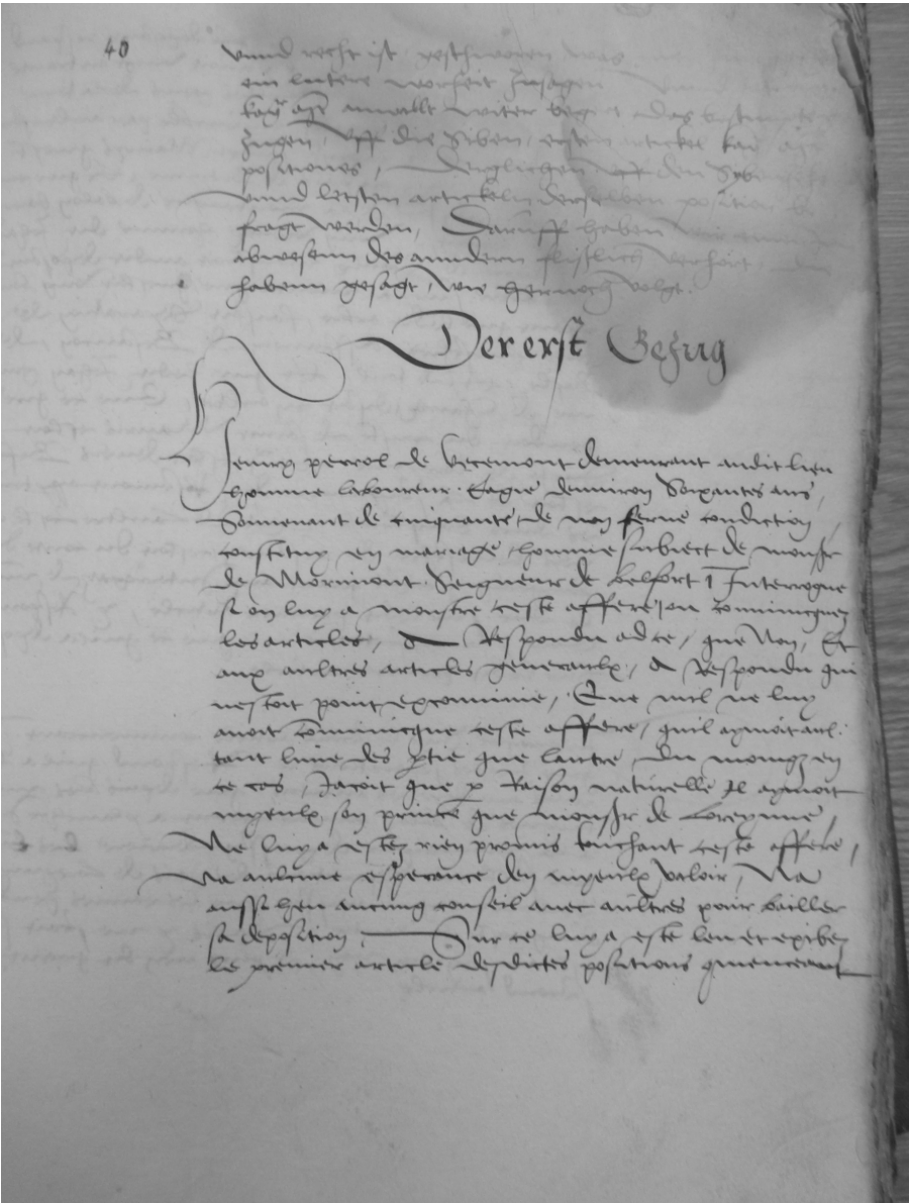 40
vnnd recht ist geschworen was
ein lutere worheit zusagen
kay: age anwallt witer beg
zugen, vff die siben ersten artickel kay
positiones, Dergglichen vff den
vnnd letsten artickeln derselben position
fragt werden, Daruff haben wir
abwesenn des anndern flislich verhört
habenn gesagt, wie hernoch volgt.
Der erst Gezug
Henry perrol de Vecemont demeurant audit lieu
homme laboureur. Eagie denuiron Soixantes ans,
Souuenant de cinquante, de non serue condiction,
constituy en mariage, homme subiect de monsr
de Morimont Seigneur de belfort, Interrogue
si on luy a monstre ceste affere, ou comunicquez
les articles, A Respondu ad ce, que Non, Et
aux aultres articles generaulx, A Respondu qui
nestoit point excominie, Que nul ne luy
auoit comunicque ceste affere, quil aymoit aul:
tant lune des ptie que lautre, Du moingz en
ce cas, Jacoit que p Raison naturelle Il aymoit
myeulx son prince que monsr de Loreynne,
Ne luy a estez rien promis touchant ceste affere,
Na aulcune esperance den myeulx valoir, Na
aussi heu aucung conseil auec aultres pour bailler
sa deposition, Sur ce luy a este leu et exibez
le premier article desdictes positions